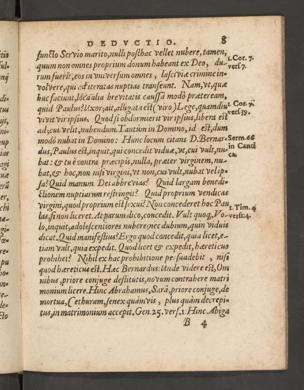 DEDVCTIO. 8
functo Servio marito, nulli posthac vellet nubere, tamen,
quum non omnes proprium donum habeant ex Deo, du-
rum fuerit, eos in universum omnes, lasciviæ crimine in-
volvere, qui ad iteratas nuptias transeunt. Nam, ut, quæ
huc faciunt, locä alia brevitatis caussâ modò præteream,
quid Paulus? Vxor, ait, alligata est (viro) Lege, quamdiu
vivit vir ipsius. Quod si obdormierit vir ipsius, libera est
ad, cui velit, nubendum. Tantùm in Domino, id est, dum
modò nubat in Domino: Hunc locum citans D. Bernar-
dus, Paulus est, inquit, qui concedit viduæ, ut, cui vult, nu-
bat: & tu è contra præcipis, nulla, præter virginem, nu-
bat, & hoc, non nisi virgini, ut non, cui vult, nubat vel ip-
sa? Quid manum Dei abbrevias? Quid largam benedi-
ctionem nuptiarum restringis? Quod proprium vendicas
virgini, quod proprium est sexui? Non concederet hoc Pau-
lus, si non liceret. At parum dico, concedit. Vult quoq;, Vo-
lo, inquit, adolescentiores nubere; nec dubium, quin viduas
dicat. Quid manifestius? Ergo quod concedit, quia licet, e-
tiam vult, quia expedit. Quod licet & expedit, hæreticus
prohibet? Nihil ex hac prohibitione persuadebit, nisi
quod hæreticus est. Hæc Bernardus: Unde videre est, Om
nibus, priore conjuge destitutis, novum contrahere matri
monium licere. Hinc Abrahamus, Sarâ, priore conjuge, de
mortua, Cethuram, senex quàmvis, plus quàm decrepi-
tus, in matrimonium accepit, Gen. 25. vers. 1: Hinc Abiga
B 4
1. Cor. 7.
vers 7.
1. Cor. 7.
vers 39.
Serm. 66
in Cand
ca.
1. Tim. 4